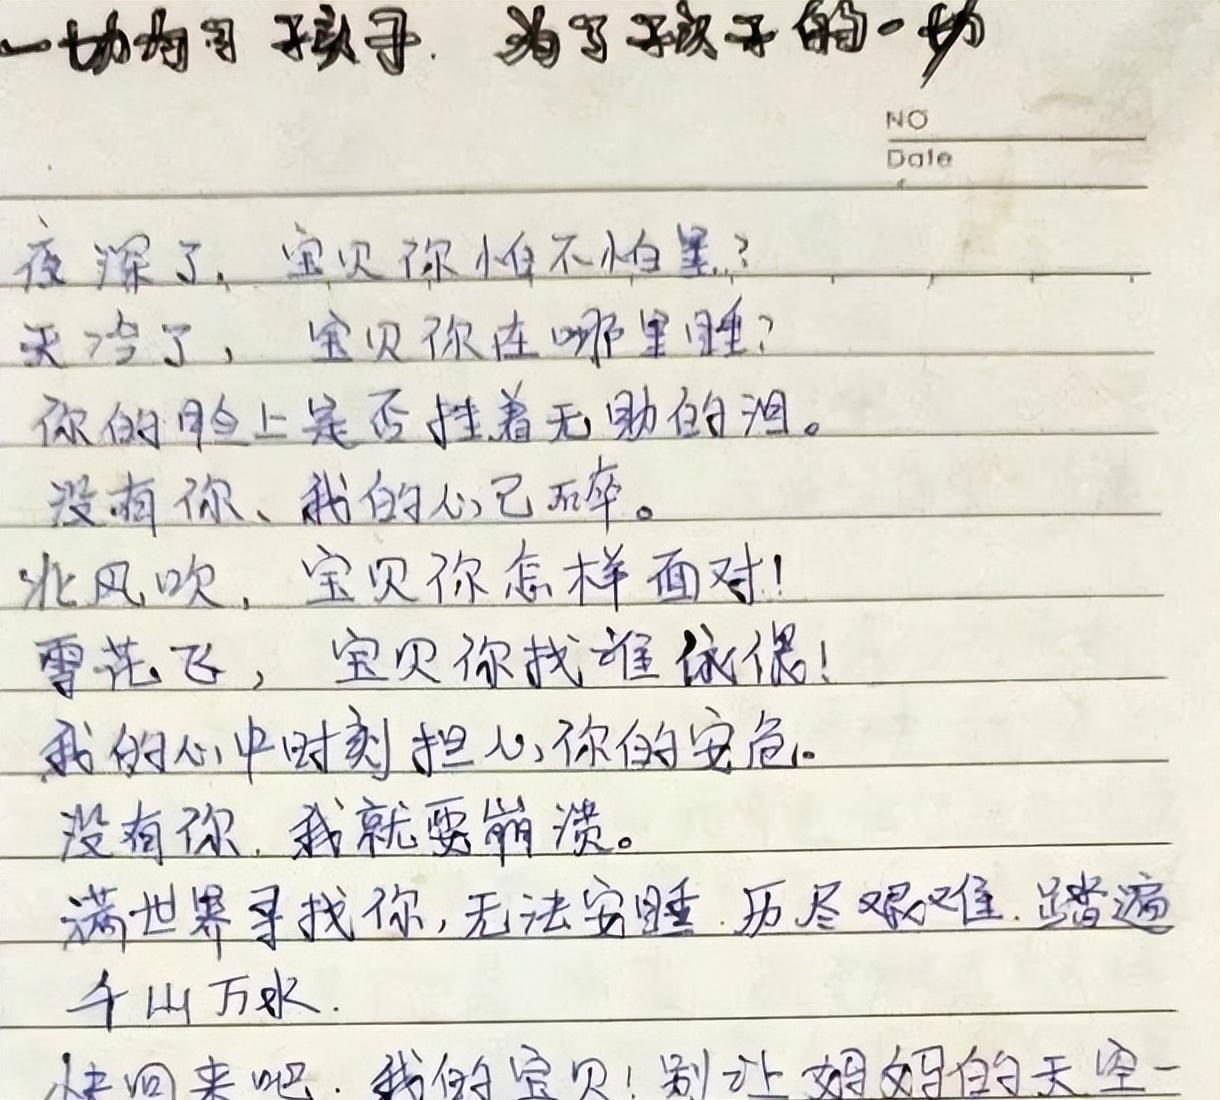 一切为了孩子. 为了孩子的一切
NO
Date
夜深了, 宝贝你怕不怕黑?
天冷了, 宝贝你在哪里睡?
你的脸上是否挂着无助的泪。
没有你、我的心已碎。
北风吹, 宝贝你怎样面对!
雪花飞, 宝贝你找谁依偎!
我的心中时刻担心你的安危。
没有你. 我就要崩溃。
满世界寻找你, 无法安睡. 历尽艰难. 踏遍
千山万水.
快回来吧. 我的宝贝! 别让妈妈的天空一